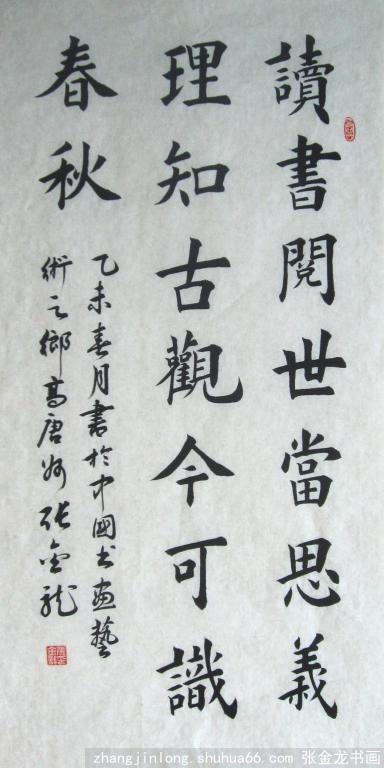 讀書閱世當思義
理知古觀今可識
春秋
乙未春月書於中國书画藝
術之鄉高唐州張金龍
zhangjinlong.shuhua66.com 张金龙书画